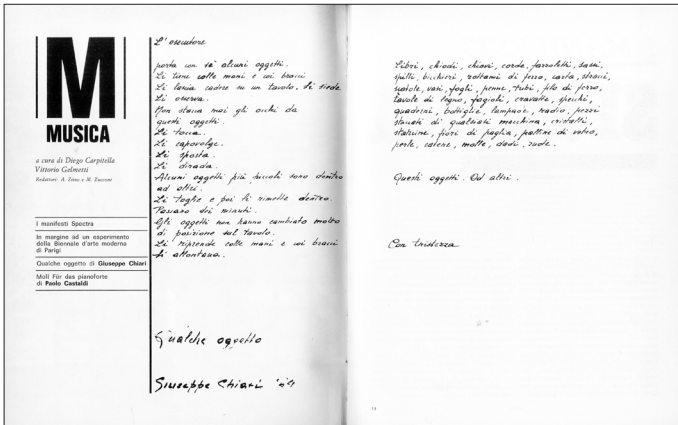 M
MUSICA
a cura di Diego Carpitella
Vittorio Gelmetti
Redattori: A. Titone e M. Zuccheri
I manifesti Spectra
In margine ad un esperimento
della Biennale d'arte moderna
di Parigi
Qualche oggetto di Giuseppe Chiari
Moll Für das pianoforte
di Paolo Castaldi
L'esecutore
porta con sé alcuni oggetti.
Li tiene colle mani e coi bracci
Li lascia cadere su un tavolo. Si siede
Li osserva.
Non stacca mai gli occhi da
questi oggetti
Li tocca.
Li capovolge.
Li sposta.
Li dirada.
Alcuni oggetti più piccoli sono dentro
ad altri.
Li toglie e poi li rimette dentro.
Passano dei minuti.
Gli oggetti non hanno cambiato molto
di posizione sul tavolo.
Li riprende colle mani e coi bracci
Si allontana.
Qualche oggetto
Giuseppe Chiari '64
Libri, chiodi, chiavi, corde, fazzoletti, sassi,
spilli, bicchieri, rottami di ferro, carta, stracci,
scatole, vasi, fogli, penne, tubi, filo di ferro,
tavole di legno, fagioli, cravatte, specchi,
quaderni, bottiglie, lampade, radio, pezzi
staccati di qualsiasi macchina, cristalli,
statuine, fiori di paglia, palline di vetro,
perle, catene, molle, dadi, ruote.
Questi oggetti. Od altri.
Con tristezza